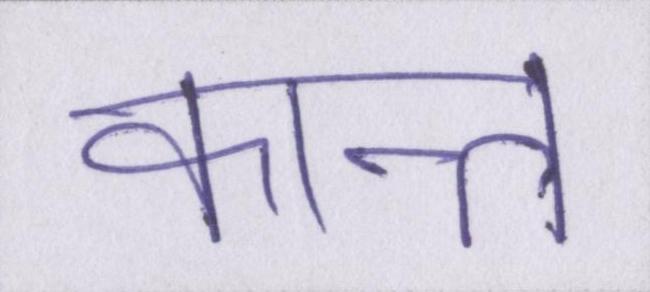 कान्त